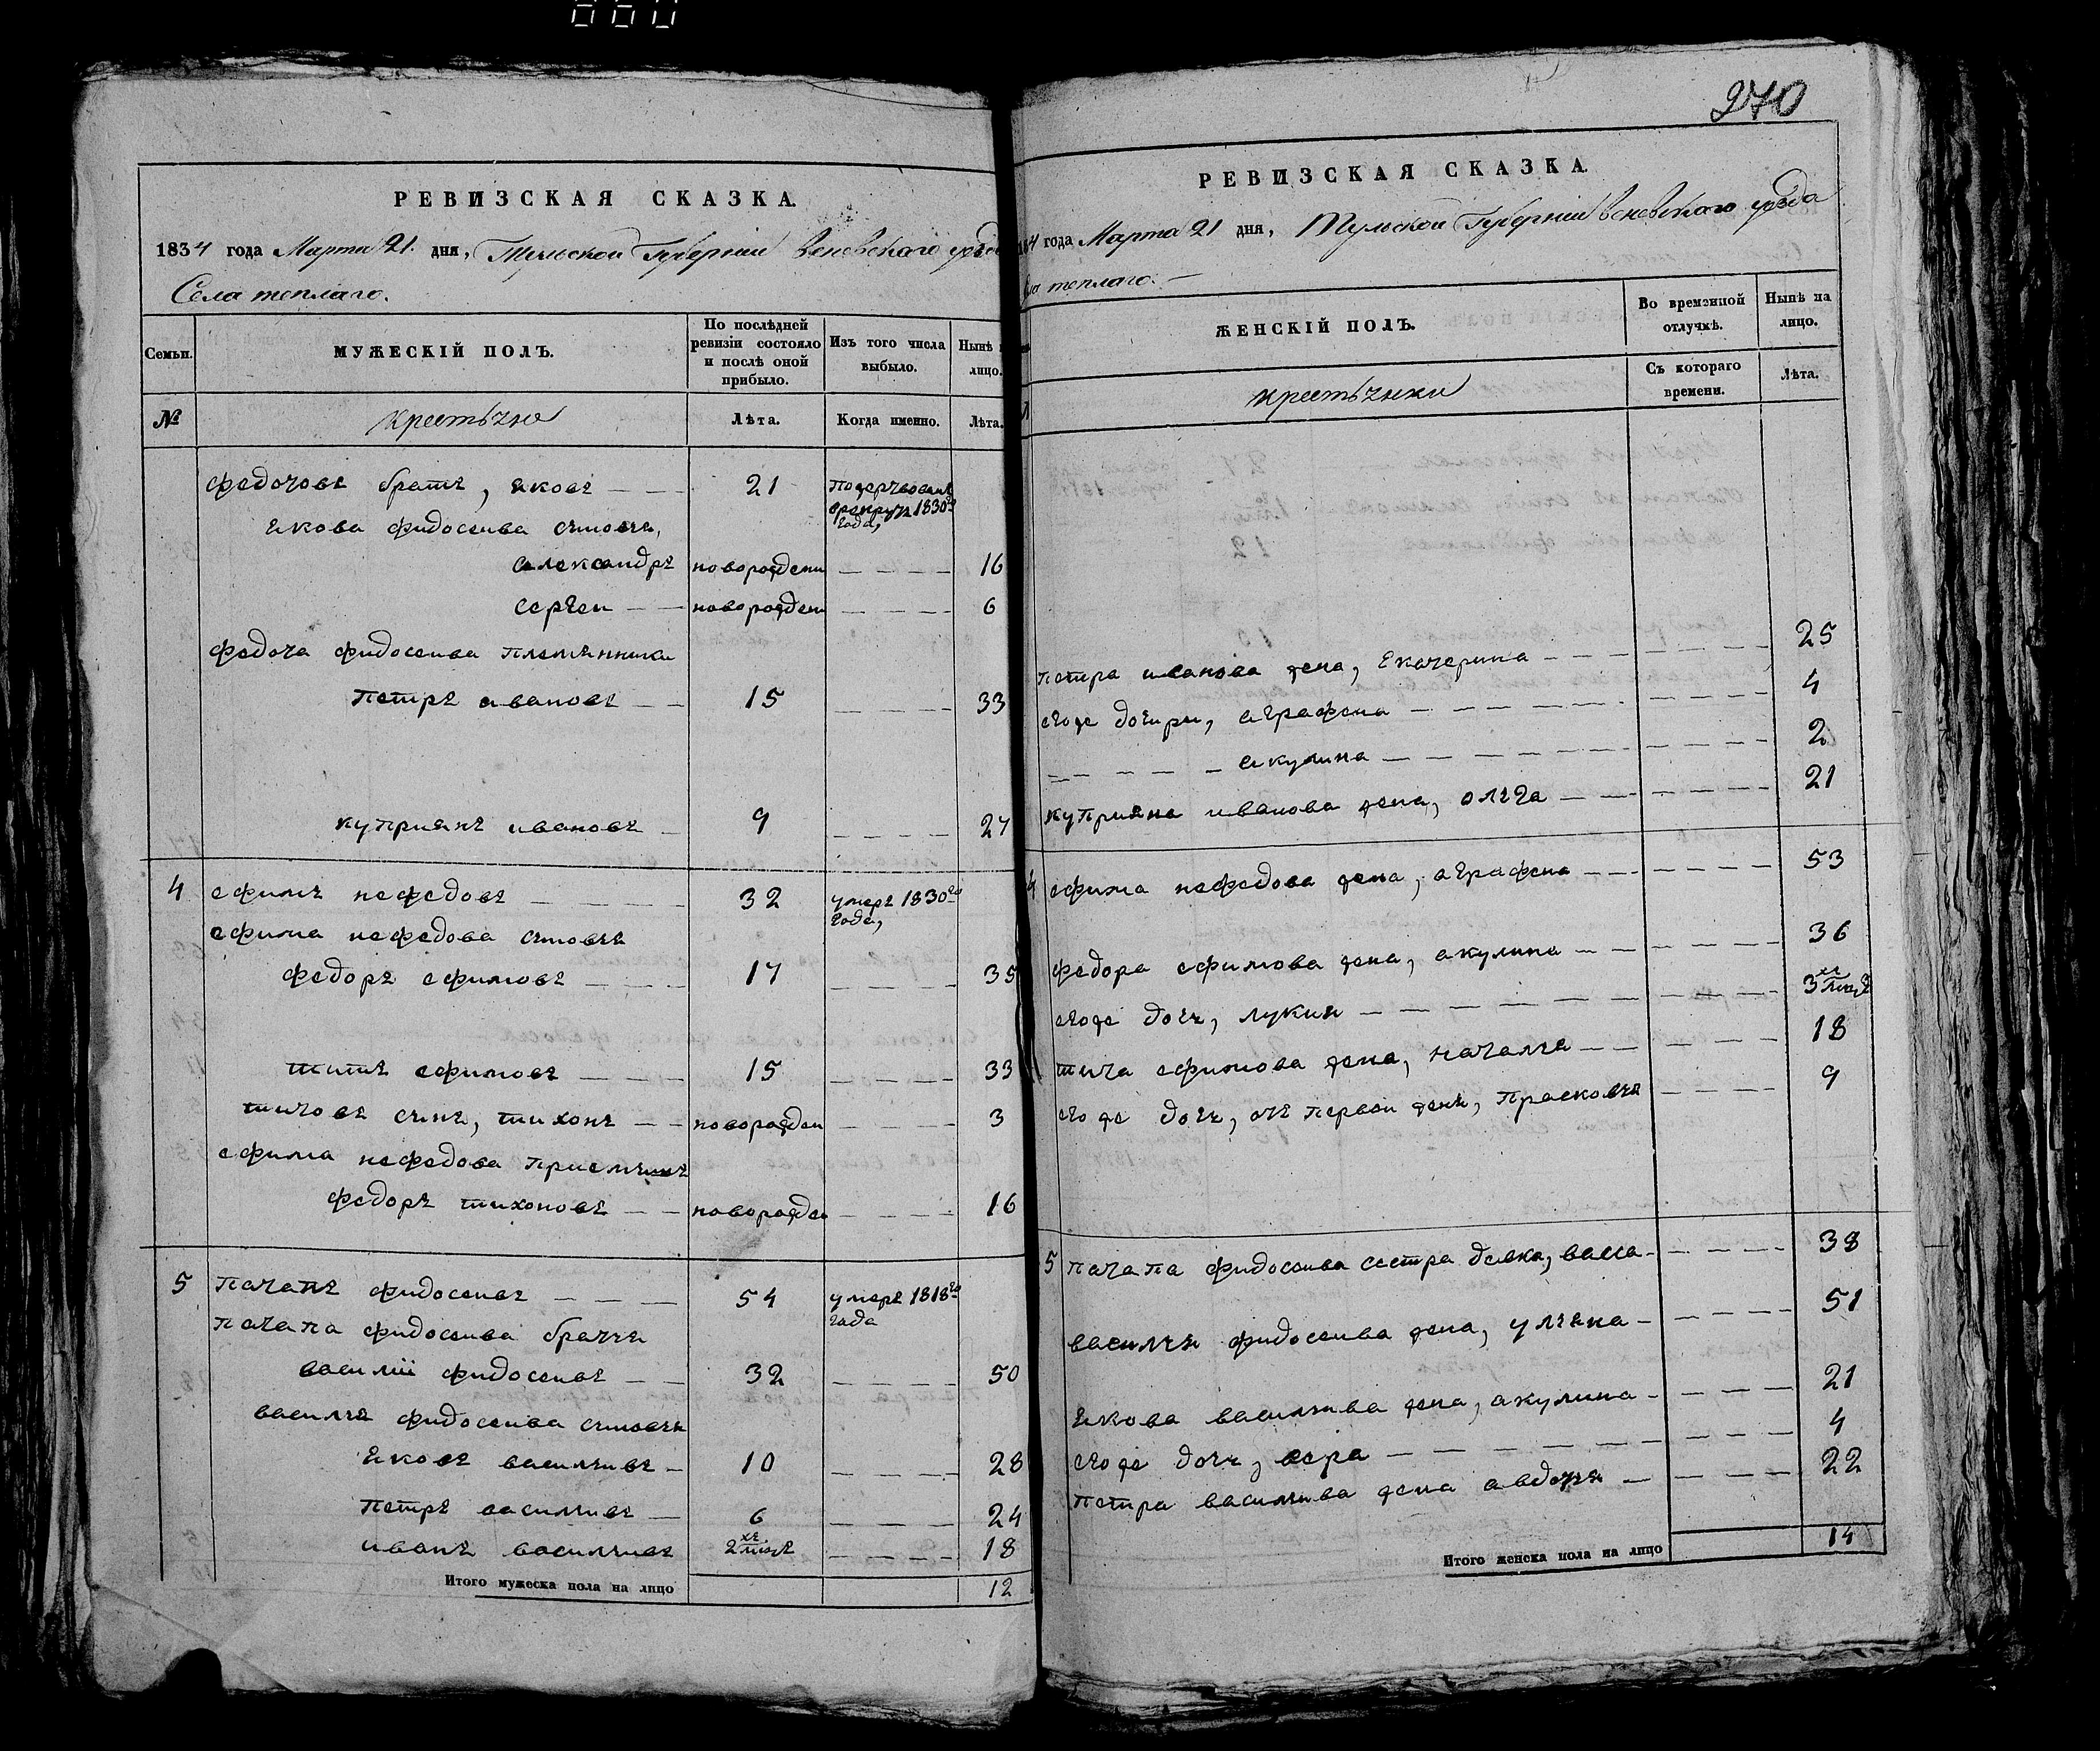 060
РЕВИЗСКАЯ СКАЗКА.
1834 года Марта 21. дня, Тульской Губерніи веневского уезда
Села теплаго.
Семьи.
МУЖЕСКІЙ ПОЛЪ.
По послѣдней ревизіи состояло и послѣ оной прибыло.
Изъ того числа выбыло.
Нынѣ на лицо.
№
крестьяне
Лѣта.
Когда именно.
Лѣта.
федотовъ братъ, яковъ 21
в рекруты 1830го года,
якова фидосеива сыновья,
александръ новорожден 16
сергеи новорожден 6
федота фидосеива племянники
петръ ивановъ 15 33
куприянъ ивановъ 9 27
4 ефимъ нефедовъ 32 умеръ 1830го года,
ефима нефедова сыновья
федоръ ефимовъ 17 35
титъ ефимовъ 15 33
титовъ сынъ, тихонъ новорожден 3
ефима нефедова приемышъ
федоръ тихоновъ новорожден 16
5 патапъ фидосеивъ 54 умеръ 1818го года
патапа фидосеива братья
василіи фидосеивъ 32 50
василья фидосеива сыновья
яковъ васильивъ 10 28
петръ васильивъ 6 24
иванъ васильивъ 2хъ 18
Итого мужеска пола на лицо 12
270
РЕВИЗСКАЯ СКАЗКА.
1834 года Марта 21 дня, Тульской Губерніи веневского уезда
села теплаго.
ЖЕНСКІЙ ПОЛЪ.
Во временной отлучкѣ.
Нынѣ на лицо.
крестьянки
Съ котораго времени.
Лѣта.
петра иванова жена, Екатерина 25
егоже дочири, аграфена 4
акулина 2
куприяна иванова жена, ольга 21
4 ефима нефедова жена, аграфена 53
федора ефимова жена, акулина 36
егоже дочь, лукия 3хъ
тита ефимова жена, наталья 18
егоже дочь, отъ первои жены, прасковья 9
5 патапа фидосеива сестра девка, васса 38
василья фидосеива жена, ульяна 51
якова васильива жена, акулина 21
егоже дочь, вера 4
петра васильива жена авдотья 22
Итого женска пола на лицо 14